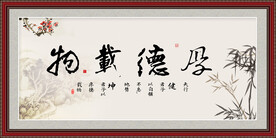 厚德載物
天行
健
君子
以自強
不息
地勢
坤
君子以
厚德
載物